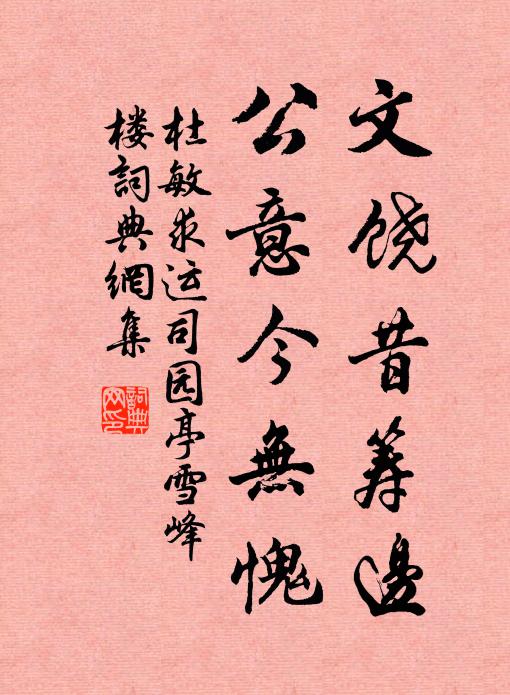 文饶昔筹邊
公意今無愧
杜敏求运司园亭雪峰
楼詞典網集
詞典网印